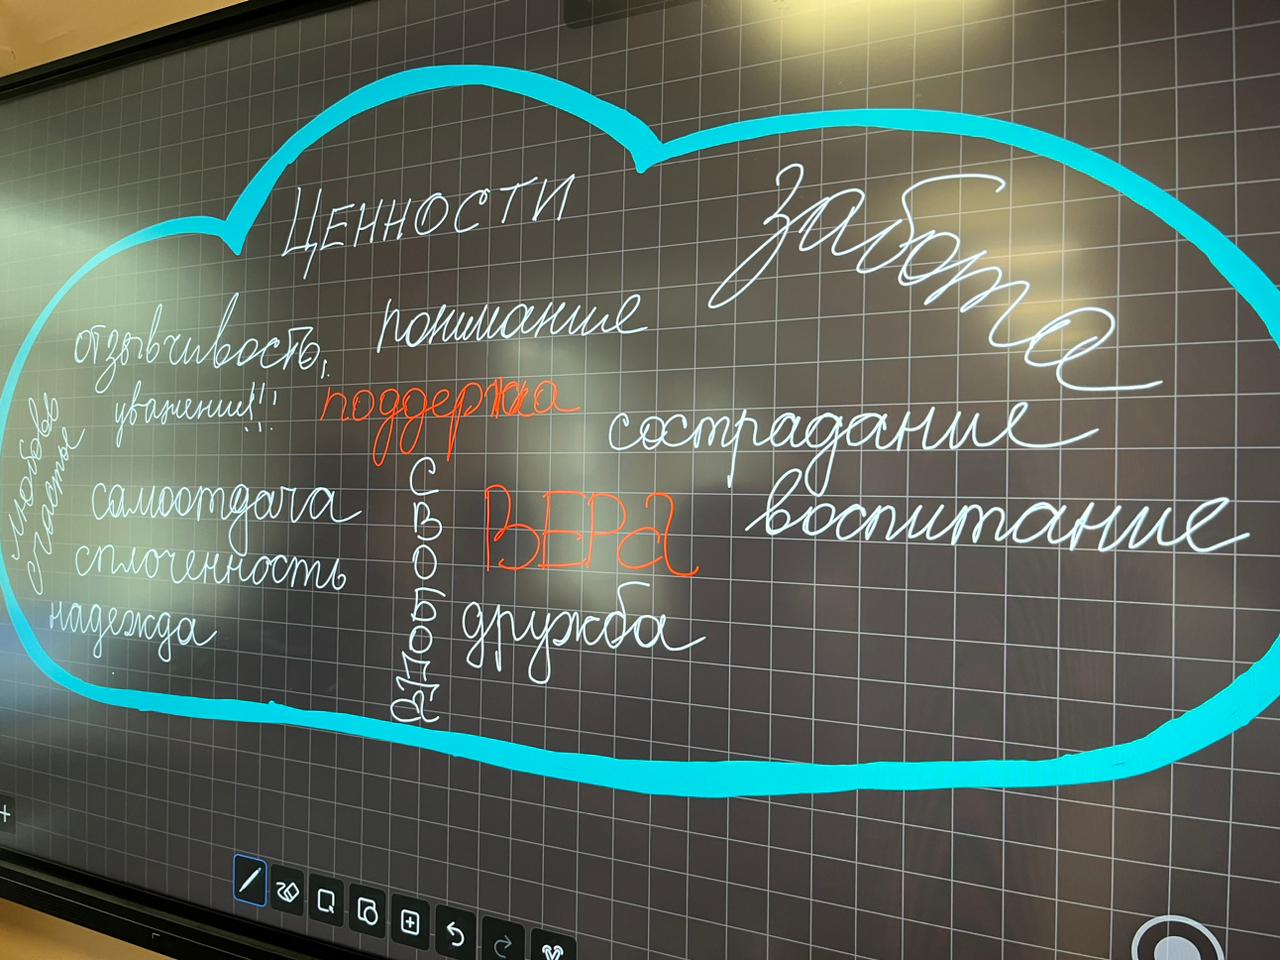 ЦЕННОСТИ
Забота
отзывчивость,
понимание
уважение!!!
поддержка
сострадание
любовь
счастье
самоотдача
СВОБОДА
ВЕРА
воспитание
сплоченность
надежда
дружба